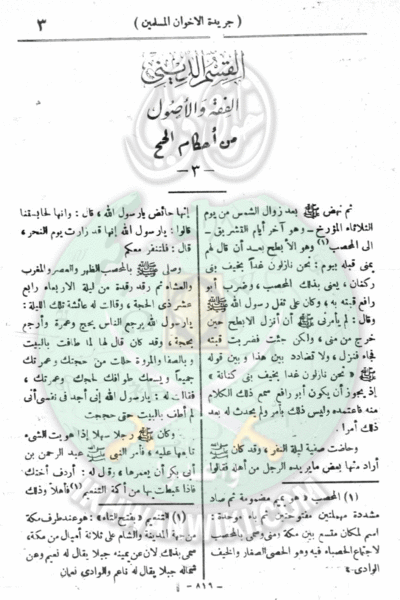 ( جريدة الاخوان المسلمين )
٣
القسم الديني
الفقه والأصول
من أحكام الحج
— ٣ —
ثم نهض ﷺ بعد زوال الشمس من يوم
الثلاثاء المؤرخ — وهو آخر أيام التشريق —
الى المحصب (١) وهو الأبطح بعد أن قال لهم
بمنى قبله بيوم : نحن نازلون غداً بخيف بنى
كنانة ، يعنى بذلك المحصب ، وضرب أبو
رافع قبته به ، وكان على ثقل رسول الله ﷺ
وقال : لم يأمرنى ﷺ أن أنزل الابطح حين
خرج من منى ، ولكن جئت فضربت قبته
فجاء فنزل ، ولا تضاد بين هذا وبين قوله
ﷺ « نحن نازلون غداً بخيف بنى كنانة »
إذ يجوز أن يكون أبو رافع سمع ذلك الكلام
منه فاعتمده وليس ذلك بأمر ولم يحدث له بعد
ذلك أمراً .
وحاضت صفية ليلة النفر ، وقد كان ﷺ
أراد منها بعض ما يريده الرجل من أهله فقالوا
(١) المحصب « هو بميم مضمومة ثم صاد
مشددة مهملتين مفتوحتين ثم باء موحدة :
اسم لمكان متسع بين مكة ومنى وسمى بالمحصب
لاجتماع الحصباء فيه وهو الحصى الصغار والخيف
الوادى . »
إنها حائض يارسول الله ، قال : وانها لحابستنا
قالوا : يارسول الله إنها قد زارت يوم النحر ،
قال : فلتنفر معكم
وصلى ﷺ بالمحصب الظهر والعصر والمغرب
والعشاء ثم رقد رقدة من ليلة الاربعاء رابع
عشر ذى الحجة ، وقالت له عائشة تلك الليلة :
يارسول الله يرجع الناس بحج وعمرة وأرجع
بحجة ، وقد كان قال لها لما طافت بالبيت
وبالصفا والمروة حللت من حجتك وعمرتك
جميعاً ويسعك طوافك لحجك وعمرتك ،
فقالت له : يارسول الله إنى أجد فى نفسى أنى
لم أطف بالبيت حتى حججت
وكان ﷺ رجلا سهلا إذا هويت الشىء
تابعها عليه ، فأمر النبى ﷺ عبد الرحمن بن
أبى بكر أن يعمرها ، وقال له : أردف أختك
فاذا هبطت بها من أكمة التنعيم (١) فأهلا وذلك
(١) التنعيم « بفتح التاء » : هو عند طرف مكة
من جهة المدينة والشام على ثلاثة أميال من مكة،
سمى بذلك لان عن يمينه جبلا يقال له نعيم وعن
شماله جبلا يقال له ناعم والوادى نعمان
— ٨١٩ —